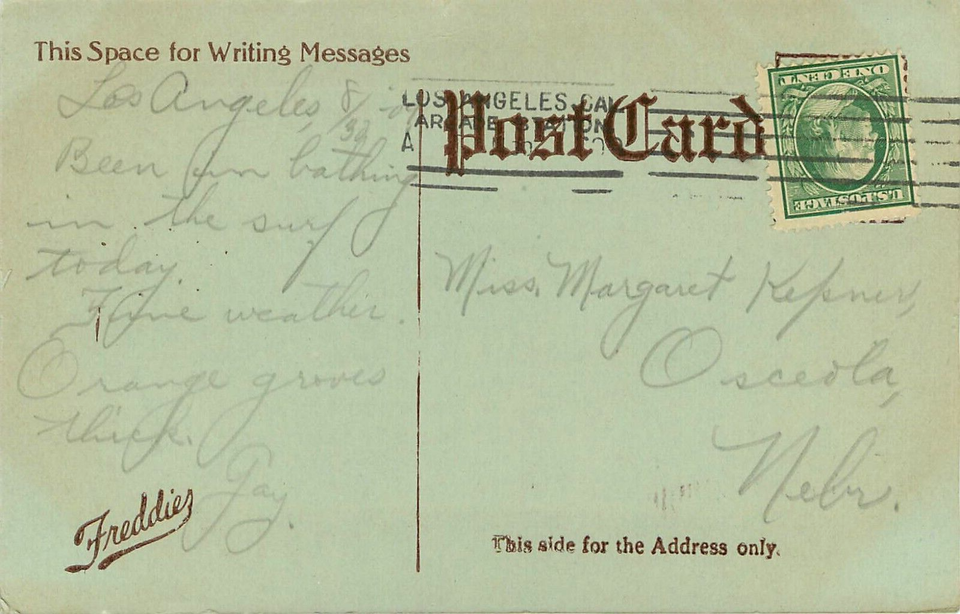 This Space for Writing Messages
Los Angeles, 8/30
Been in bathing
in the surf
today.
Fine weather.
Orange groves
thick.
Jay.
Freddies
LOS ANGELES, CAL
Post Card
ONE CENT
U.S. POSTAGE
Miss. Margaret Kepner,
Osceola,
Nebr.
This side for the Address only.